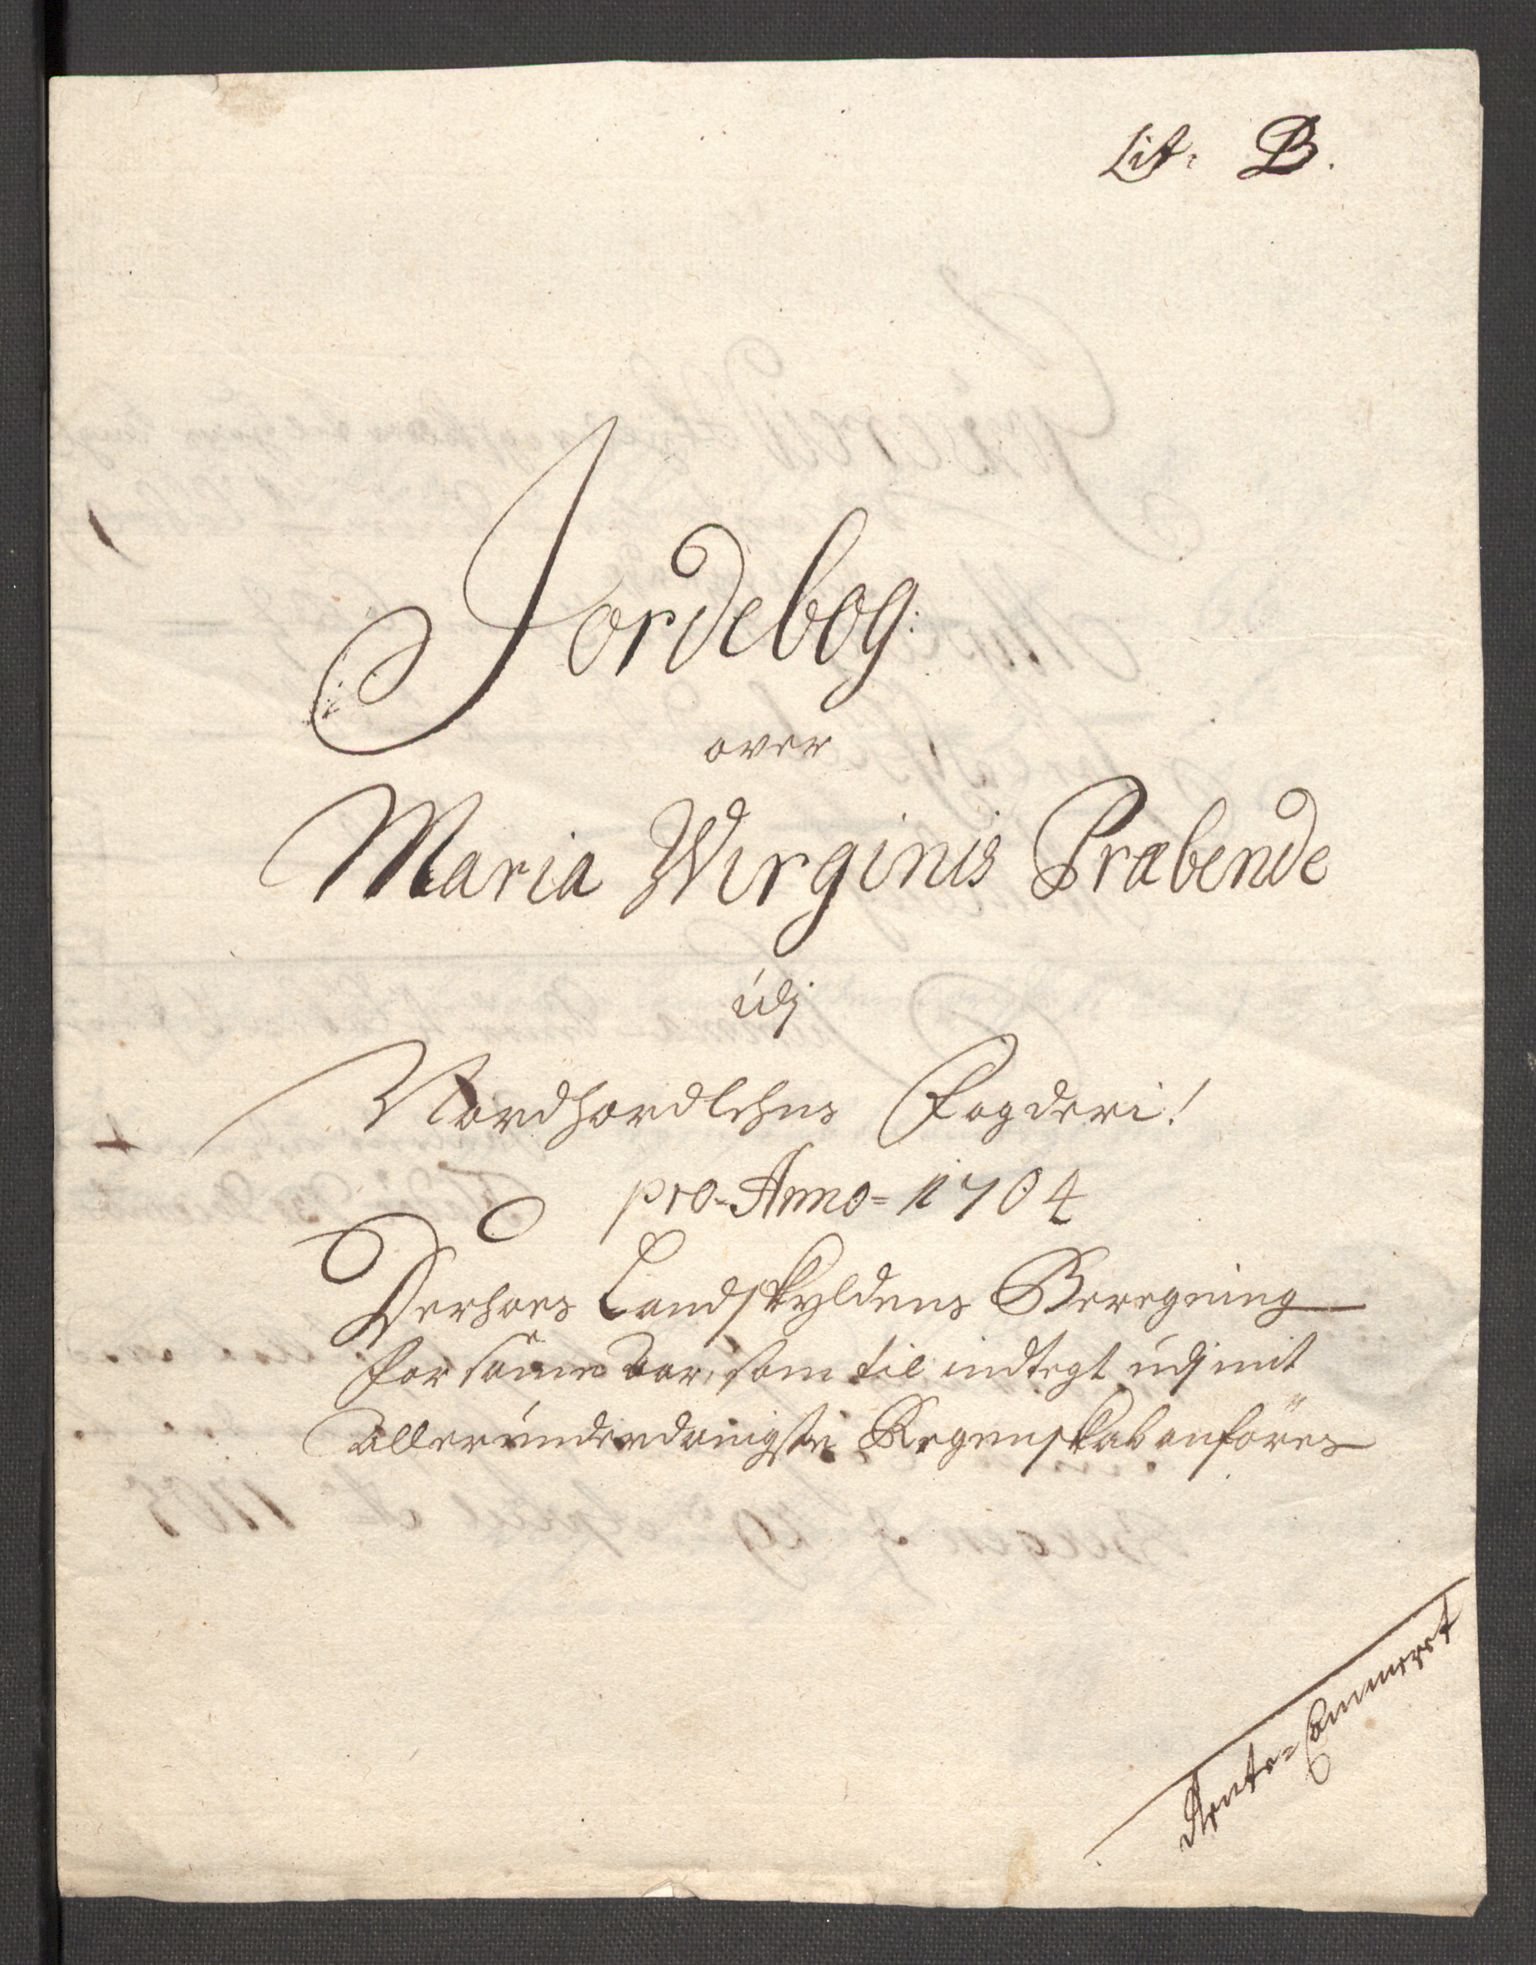 Lit: B.
Jordebog
over
Maria Wirginis Præbende
udj
Nordhordlehns Fogderi!
pro-Anno=1704
Derhoes Landskyldens Beregning
for same Aar, som til indtegt udj mit
allerunderdanigste Regenskab anföres
Rente=Cammeret